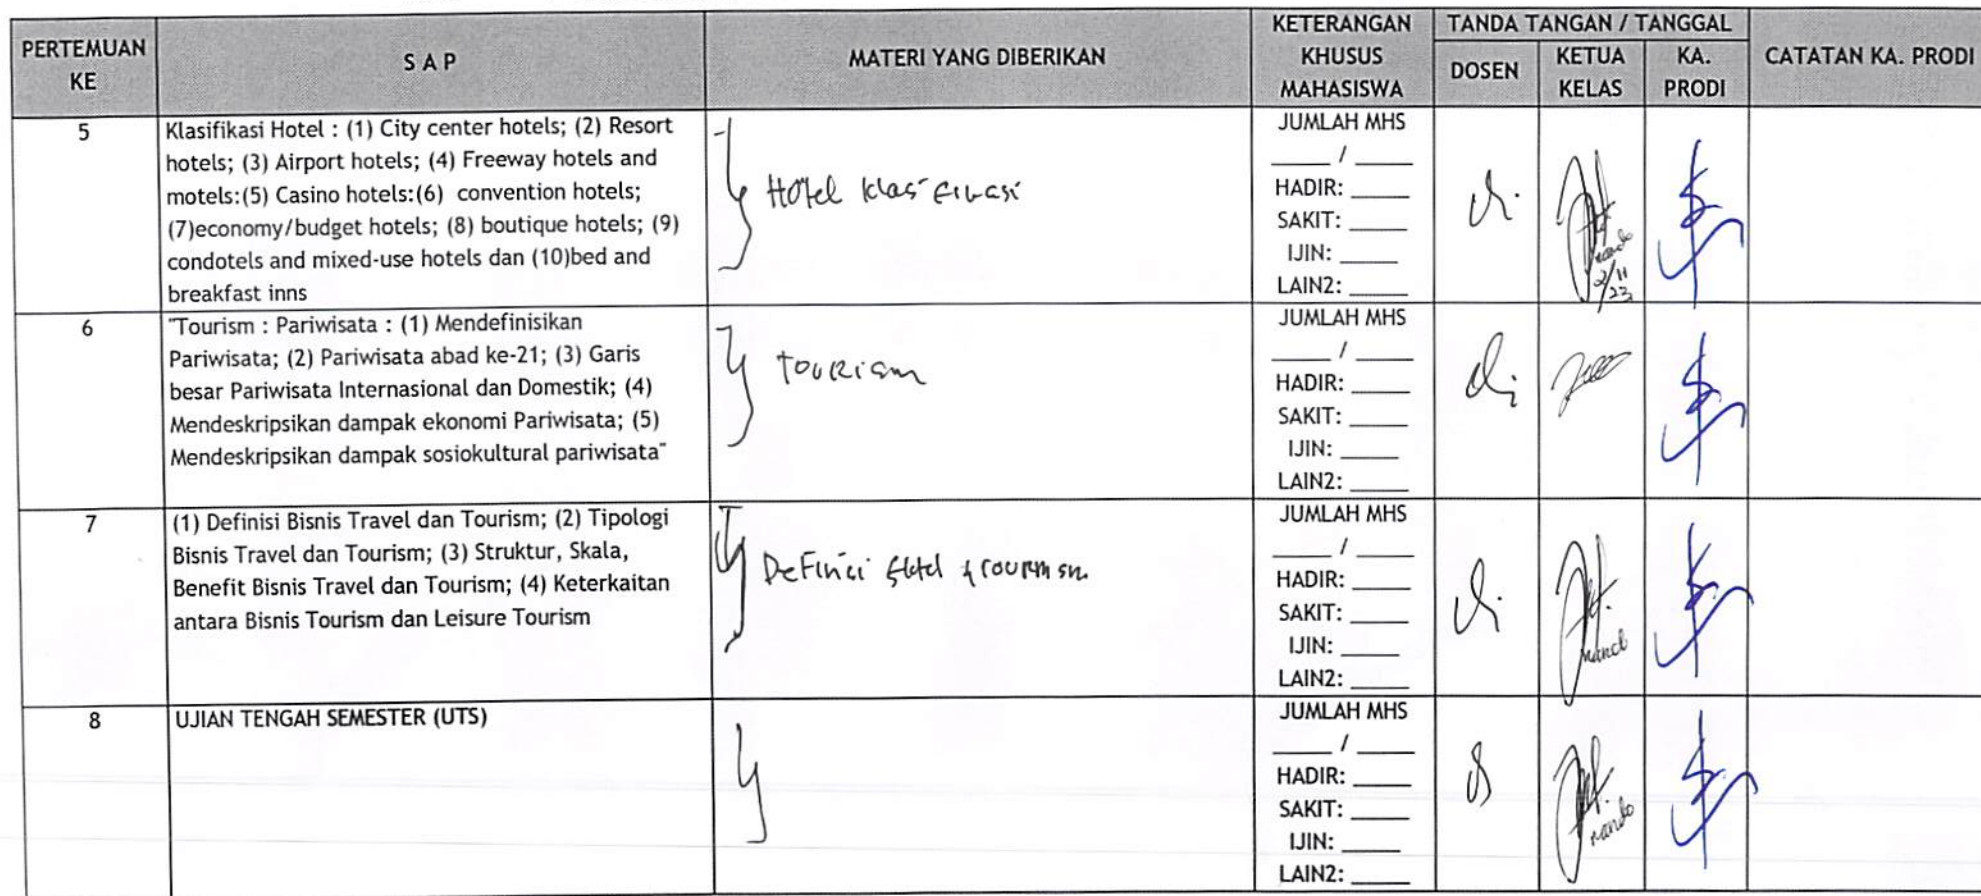 PERTEMUAN KE
S A P
MATERI YANG DIBERIKAN
KETERANGAN KHUSUS MAHASISWA
TANDA TANGAN / TANGGAL
DOSEN
KETUA KELAS
KA. PRODI
CATATAN KA. PRODI
5
Klasifikasi Hotel : (1) City center hotels; (2) Resort
hotels; (3) Airport hotels; (4) Freeway hotels and
motels:(5) Casino hotels:(6) convention hotels;
(7)economy/budget hotels; (8) boutique hotels; (9)
condotels and mixed-use hotels dan (10)bed and
breakfast inns
Hotel klasifikasi
JUMLAH MHS
____ / ____
HADIR: ____
SAKIT: ____
IJIN: ____
LAIN2: ____
nando
2/11
23
6
"Tourism : Pariwisata : (1) Mendefinisikan
Pariwisata; (2) Pariwisata abad ke-21; (3) Garis
besar Pariwisata Internasional dan Domestik; (4)
Mendeskripsikan dampak ekonomi Pariwisata; (5)
Mendeskripsikan dampak sosiokultural pariwisata"
Tourism
JUMLAH MHS
____ / ____
HADIR: ____
SAKIT: ____
IJIN: ____
LAIN2: ____
7
(1) Definisi Bisnis Travel dan Tourism; (2) Tipologi
Bisnis Travel dan Tourism; (3) Struktur, Skala,
Benefit Bisnis Travel dan Tourism; (4) Keterkaitan
antara Bisnis Tourism dan Leisure Tourism
Definisi
JUMLAH MHS
____ / ____
HADIR: ____
SAKIT: ____
IJIN: ____
LAIN2: ____
nando
8
UJIAN TENGAH SEMESTER (UTS)
JUMLAH MHS
____ / ____
HADIR: ____
SAKIT: ____
IJIN: ____
LAIN2: ____
nando